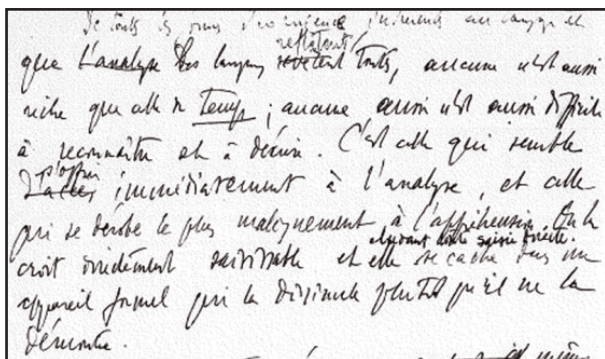 De toutes les formes d'expérience inhérentes au langage et
reflètent
que l'analyse des langues revêtent toutes, aucune n'est aussi
riche que celle de Temps ; aucune aussi n'est aussi difficile
à reconnaître et à décrire. C'est celle qui semble
s'offrir
D'accès immédiatement à l'analyse, et celle
qui se dérobe le plus malignement à l'appréhension. On la
croit évidemment saisissable et elle se cache dans un
éludant toute saisie directe.
appareil formel qui la dissimule plutôt qu'il ne la
démontre.
même